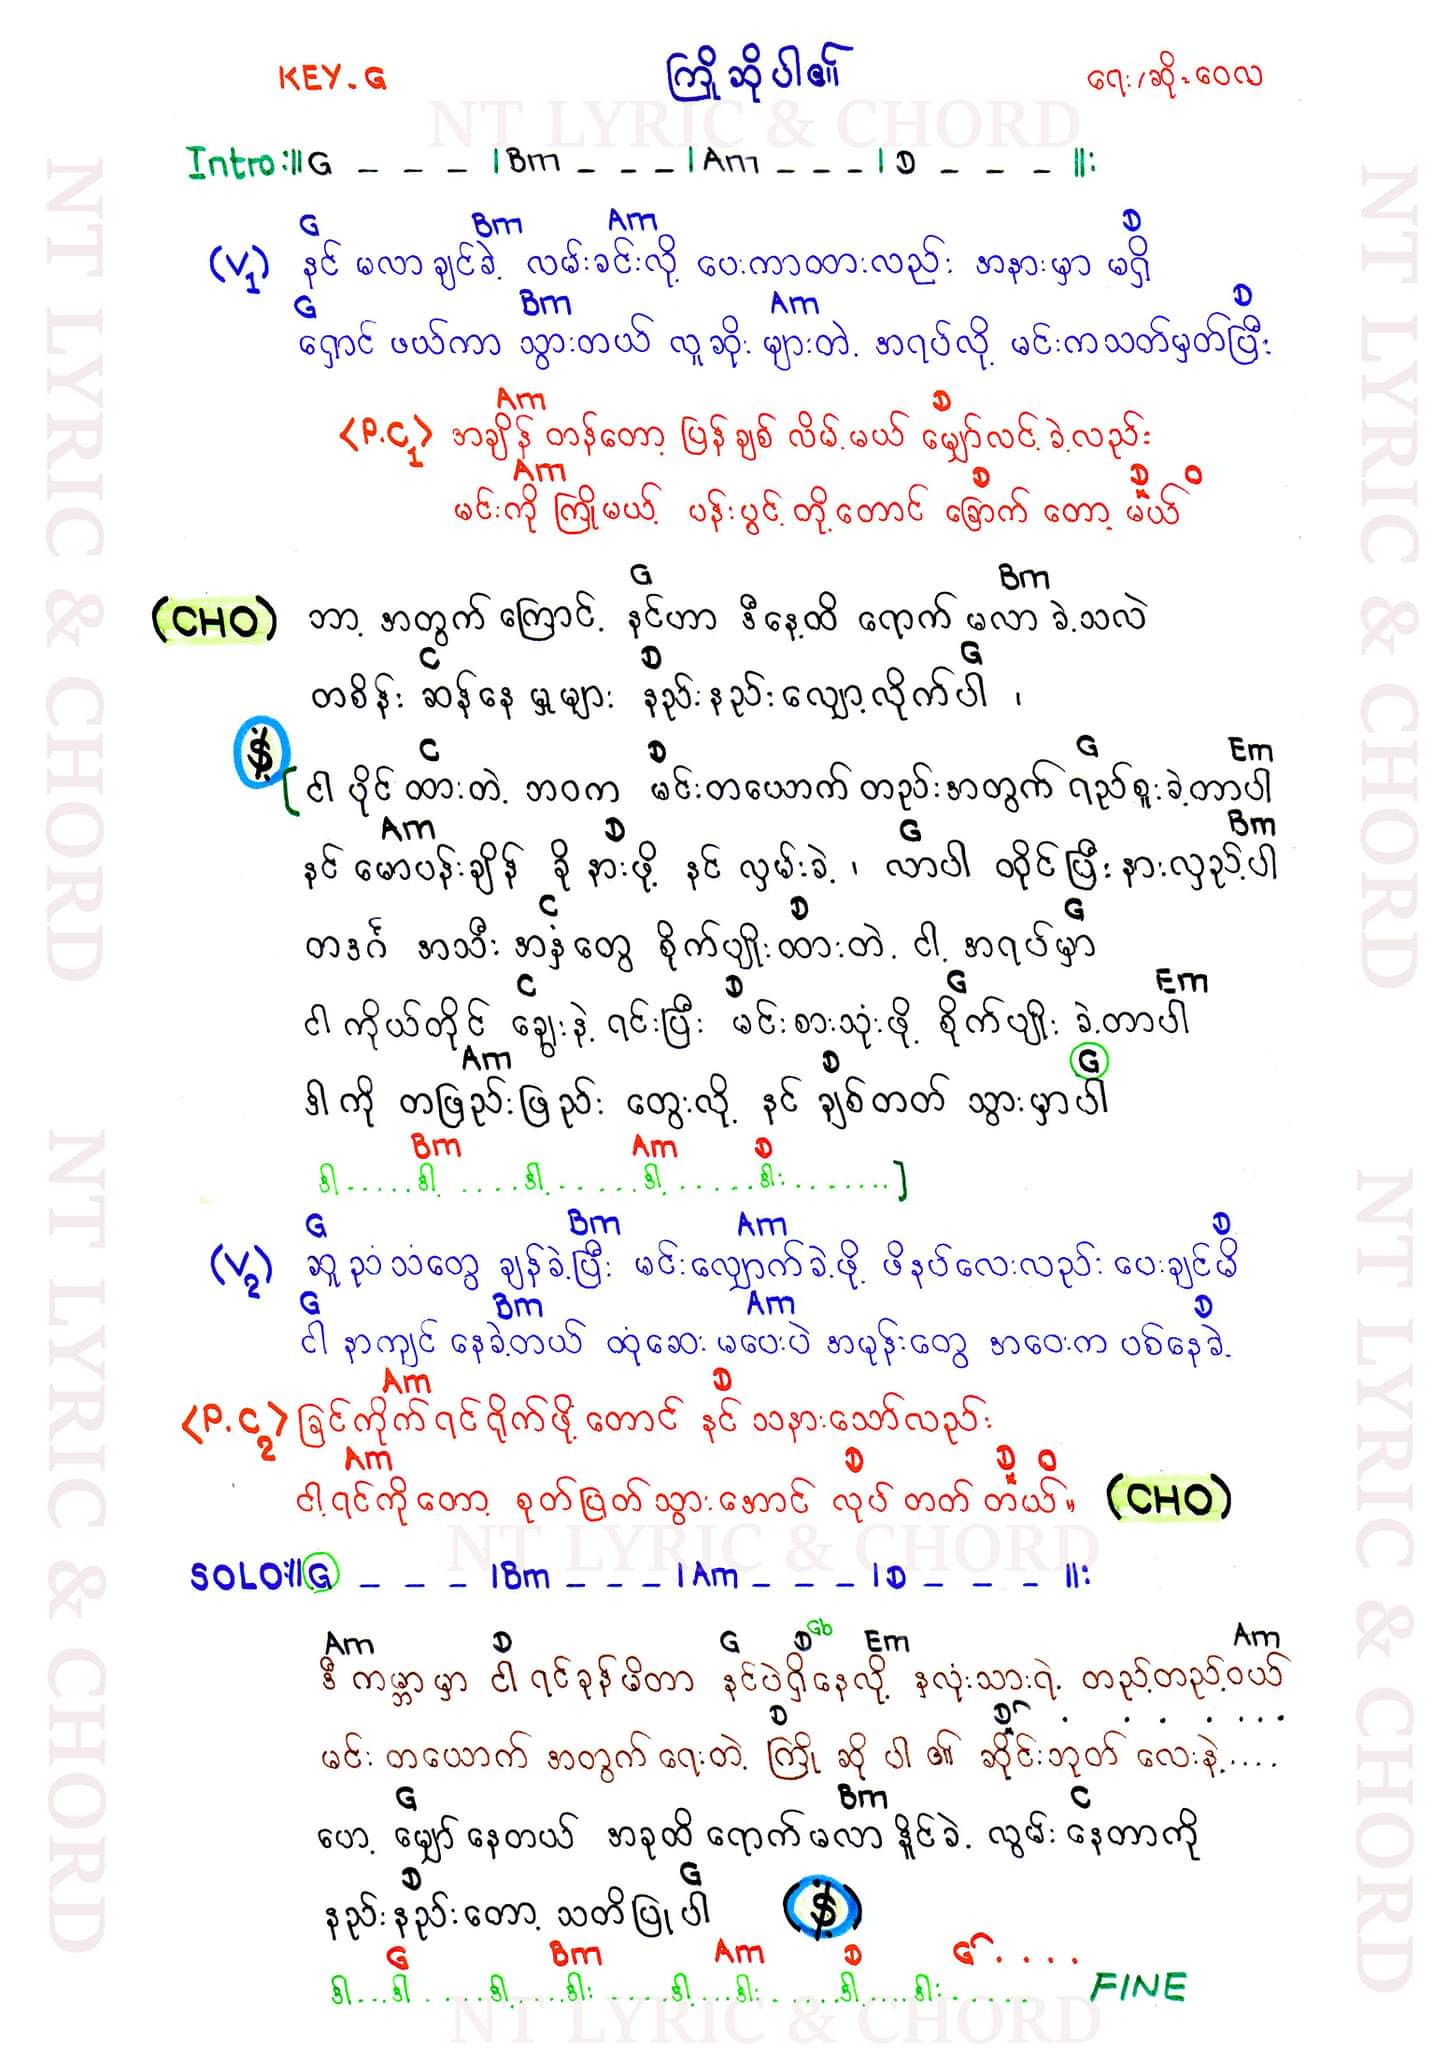 KEY.G ကြိုဆိုပါ၏ ရေး/ဆို = ဝေလ
NT LYRIC & CHORD
Intro:|| G _ _ _ | Bm _ _ _ | Am _ _ _ | D _ _ _ ||:
G Bm Am D
(V1) နင် မလာချင်ခဲ့ လမ်းခင်းလို့ ပေးကာထားလည်း အနားမှာ မရှိ
G Bm Am D
ရှောင် ဖယ်ကာ သွားတယ် လူဆိုး များတဲ့ အရပ်လို့ မင်းကသတ်မှတ်ပြီး
Am D
<P.C1> အချိန် တန်တော့ ပြန်ချစ် လိမ့်မယ် မျှော်လင့်ခဲ့လည်း
Am D D O
မင်းကို ကြိုမယ့် ပန်းပွင့် တို့တောင် ခြောက် တော့ မယ်
G Bm
(CHO) ဘာ့ အတွက် ကြောင့် နင်ဟာ ဒီနေ့ထိ ရောက် မလာ ခဲ့သလဲ
C D G
တစိန်း ဆန်နေ မှုများ နည်းနည်းလျှော့လိုက်ပါ ၊
C D G Em
[ ငါ ပိုင် ထားတဲ့ ဘဝက မင်းတယောက် တည်းအတွက် ရည်စူးခဲ့တာပါ
Am D G Bm
နင် မောပန်းချိန် ခို နားဖို့ နင် လှမ်းခဲ့ ၊ လာပါ ထိုင်ပြီး နားလှည့်ပါ
C D G
တဒင်္ဂ အသီး အနှံတွေ စိုက်ပျိုးထားတဲ့ ငါ့ အရပ်မှာ
C D G Em
ငါ ကိုယ်တိုင် ချွေးနဲ့ ရင်းပြီး မင်းစားသုံးဖို့ စိုက်ပျိုး ခဲ့တာပါ
Am D G
ဒါကို တဖြည်းဖြည်း တွေးလို့ နင် ချစ်တတ် သွားမှာပါ
Bm Am D
ဒါ.....ဒါ့.....ဒါ့......ဒါ့......ဒါး........]
G Bm Am D
(V2) ဆူးညှံသံတွေ ချန်ခဲ့ပြီး မင်းလျှောက်ခဲ့ဖို့ ဖိနပ်လေးလည်း ပေးချင်မိ
G Bm Am D
ငါ နာကျင် နေခဲ့တယ် ထုံဆေး မပေးပဲ အမုန်းတွေ အဝေးက ပစ်နေခဲ့
Am D
<P.C2> ခြင်ကိုက်ရင် ရိုက်ဖို့တောင် နင် သနားသော်လည်း
Am D D O
ငါ့ရင်ကိုတော့ စုတ်ပြတ်သွားအောင် လုပ် တတ် တယ်။ (CHO)
NT LYRIC & CHORD
SOLO:|| G _ _ _ | Bm _ _ _ | Am _ _ _ | D _ _ _ ||:
Am D G D Gb Em Am
ဒီ ကမ္ဘာမှာ ငါ ရင်ခုန်မိတာ နင်ပဲရှိနေလို့ နှလုံးသားရဲ့ တည့်တည့်ဝယ်
D D
မင်း တယောက် အတွက် ရေးတဲ့ ကြို ဆို ပါ ၏ ဆိုင်းဘုတ် လေးနဲ့....
G Bm C
ဟေ့ မျှော်နေတယ် အခုထိ ရောက်မလာ နိူင်ခဲ့ လွမ်း နေတာကို
D G
နည်းနည်းတော့ သတိပြု ပါ
G Bm Am D G....
ဒါ...ဒါ.....ဒါ့....ဒါး.....ဒါ့...ဒါး.....ဒါ....ဒါး...... FINE
NT LYRIC & CHORD
NT LYRIC & CHORD
NT LYRIC & CHORD
NT LYRIC & CHORD
NT LYRIC & CHORD